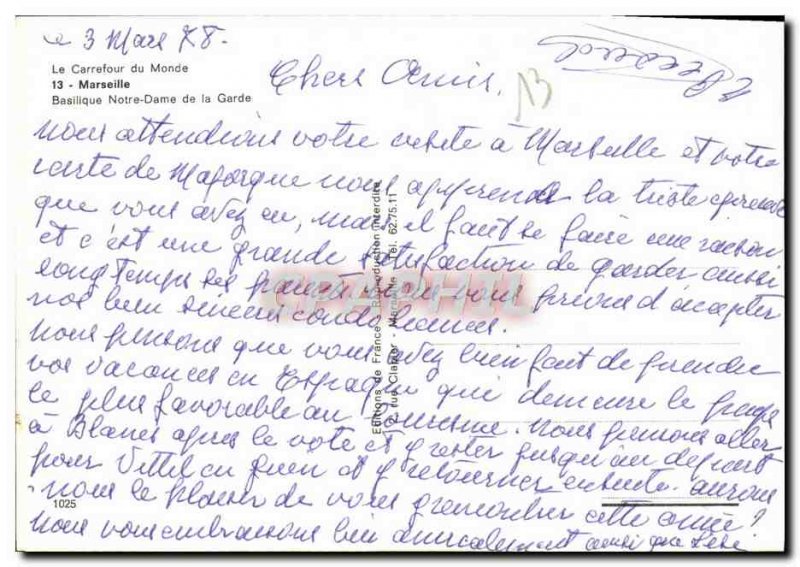 le 3 Mars 78.
Le Carrefour du Monde
13 - Marseille
Basilique Notre-Dame de la Garde
Chers Amis,
13
nous attendions votre visite à Marseille et votre
carte de Majorque nous apprend la triste épreuve
que vous avez eu, mais il faut se faire une raison
et c'est une grande satisfaction de garder aussi
longtemps ses parents, nous vous prions d'accepter
nos bien sincères condoléances.
nous pensons que vous avez bien fait de prendre
vos vacances en Espagne qui demeure le pays
le plus favorable au tourisme. nous pensons aller
à Blanes après le vote et y rester jusqu'au départ
pour Vittel en Juin et y retourner ensuite. aurons
nous le plaisir de vous y rencontrer cette année ?
nous vous embrassons bien amicalement ainsi que
1025
Editions de France - Reproduction interdite
rue Clapier - Marseille - Tél. 62.75.11
CPAPHIL